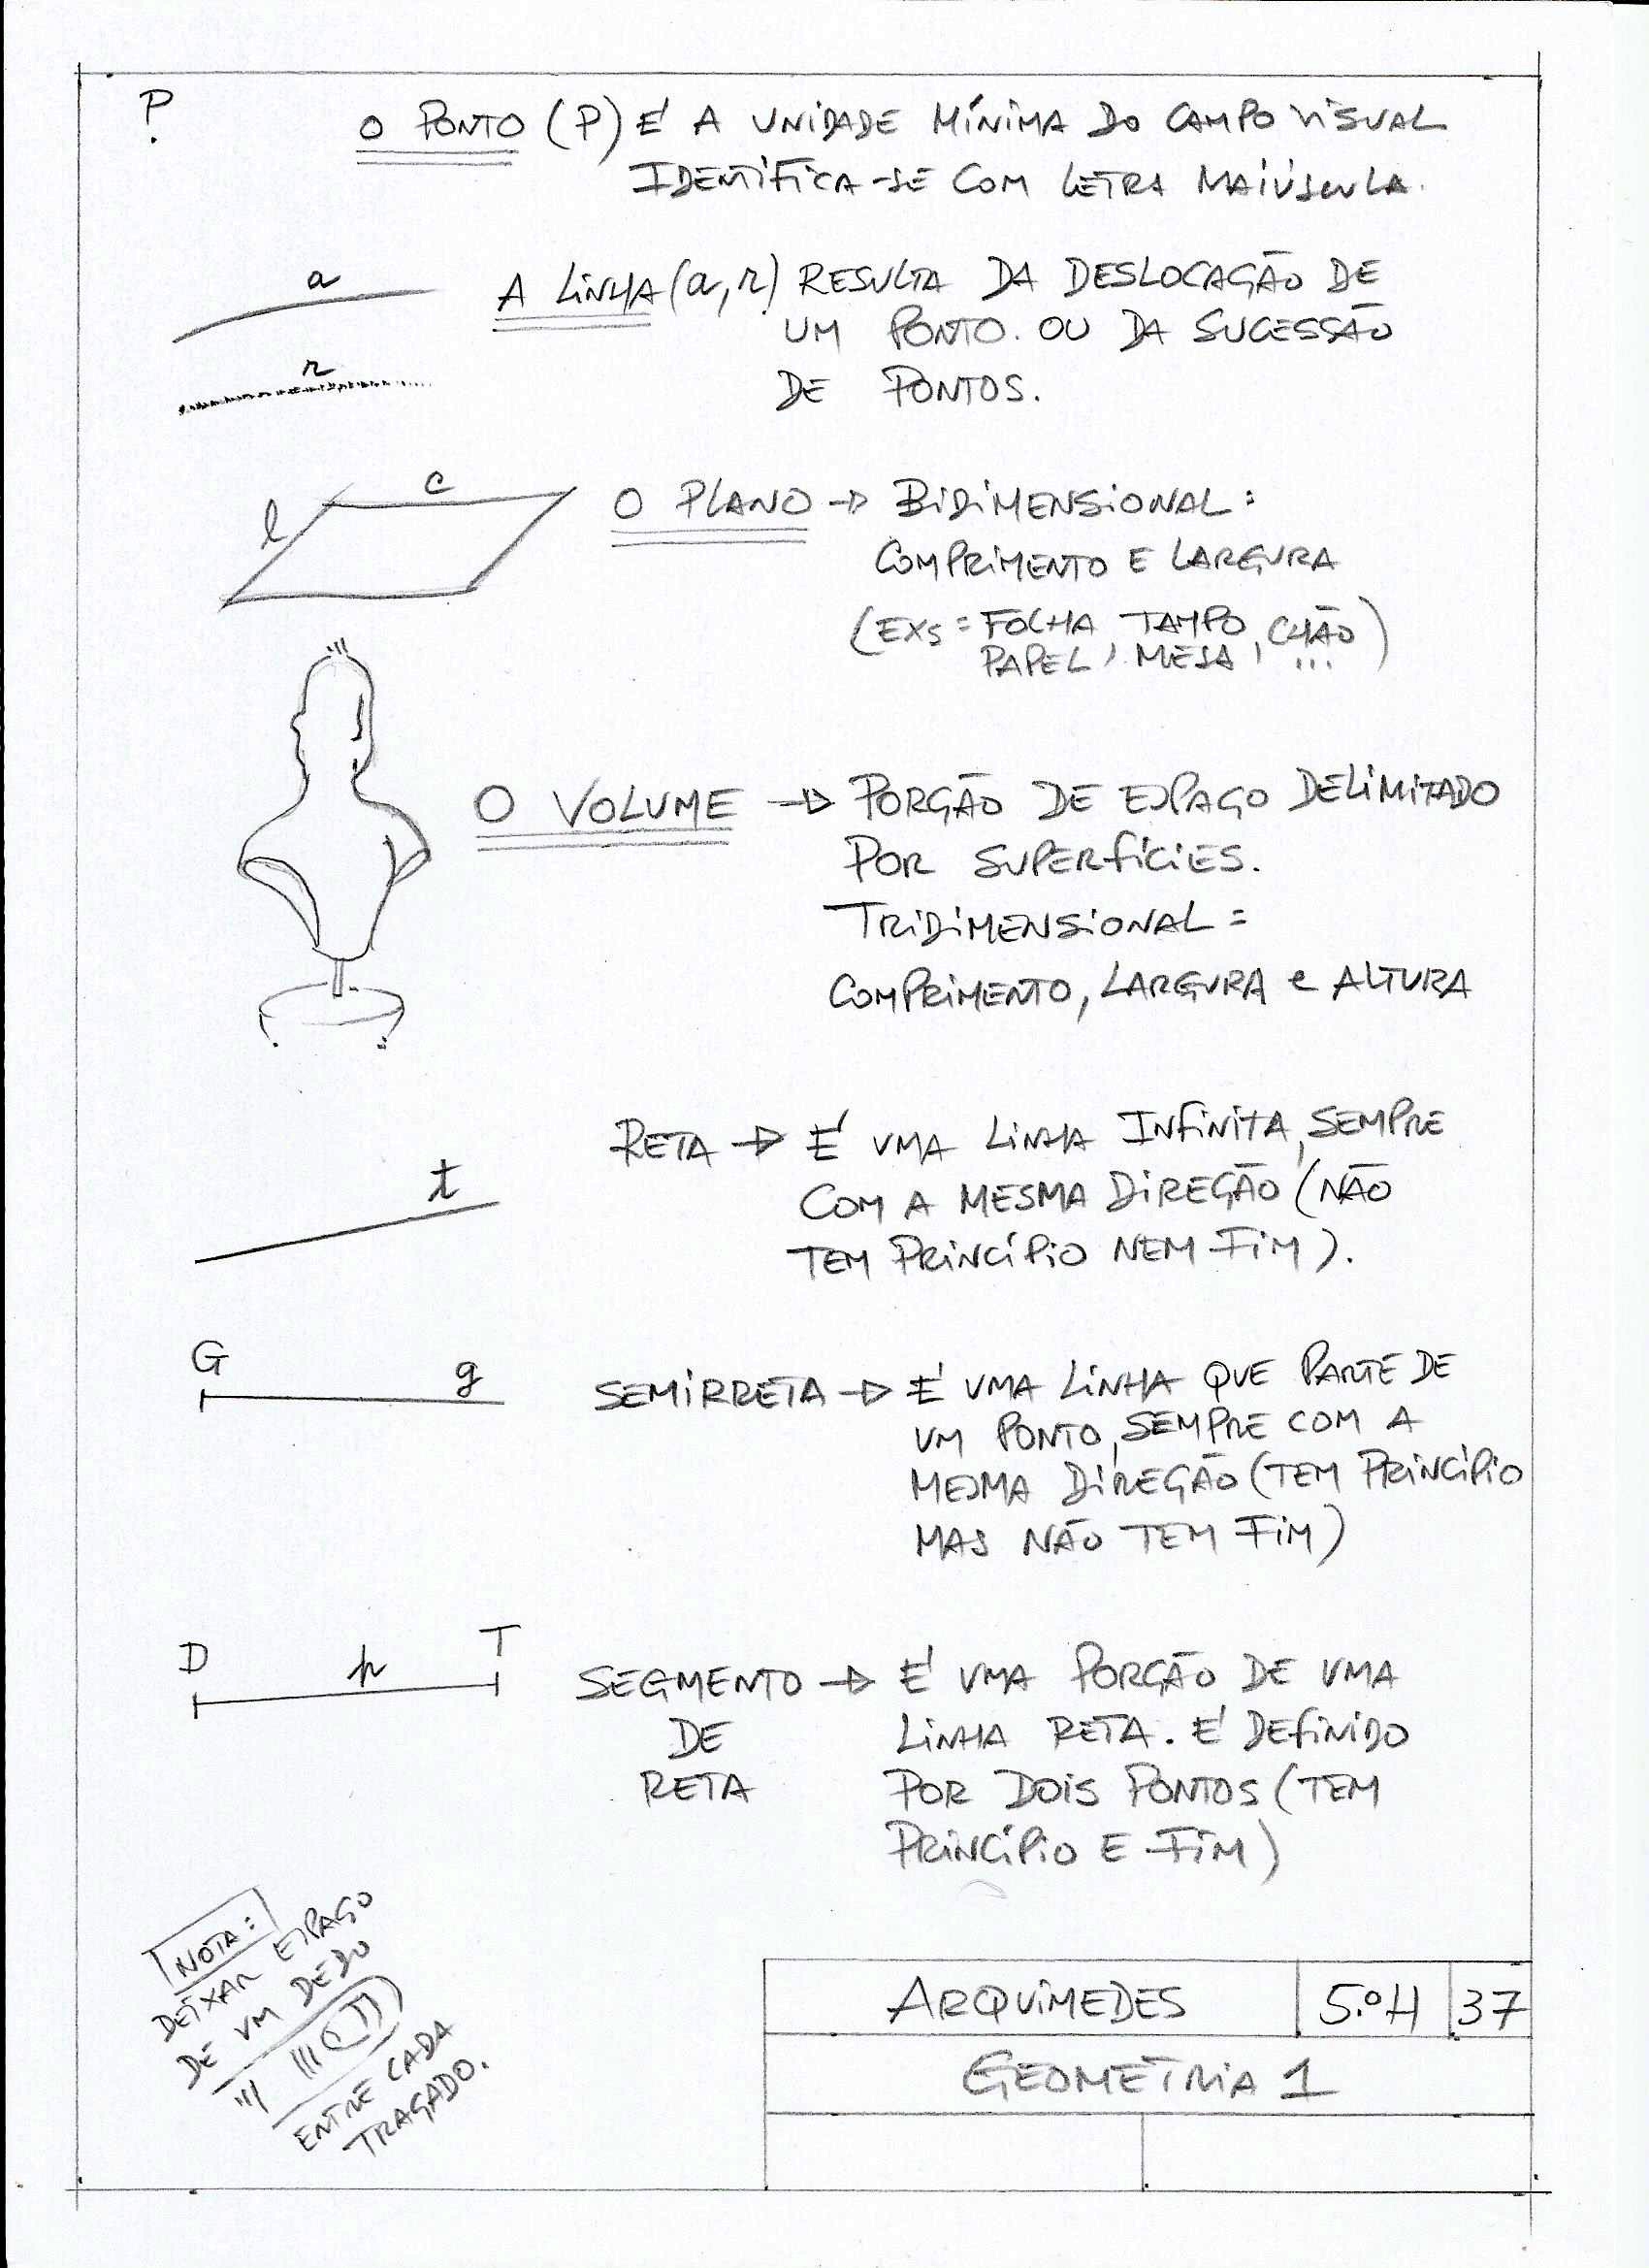 P
O PONTO (P) É A UNIDADE MÍNIMA DO CAMPO VISUAL
IDENTIFICA-SE COM LETRA MAIÚSCULA.
a
A LINHA (a, r) RESULTA DA DESLOCAÇÃO DE
UM PONTO. OU DA SUCESSÃO
r
DE PONTOS.
c
l
O PLANO → BIDIMENSIONAL:
COMPRIMENTO E LARGURA
(EXS = FOLHA, TAMPO, CHÃO)
PAPEL, MESA, ...
O VOLUME → PORÇÃO DE ESPAÇO DELIMITADO
POR SUPERFÍCIES.
TRIDIMENSIONAL =
COMPRIMENTO, LARGURA e ALTURA
RETA → É UMA LINHA INFINITA, SEMPRE
t
COM A MESMA DIREÇÃO (NÃO
TEM PRINCÍPIO NEM FIM).
G
g
SEMIRRETA → É UMA LINHA QUE PARTE DE
UM PONTO, SEMPRE COM A
MESMA DIREÇÃO (TEM PRINCÍPIO
MAS NÃO TEM FIM)
D
p
T
SEGMENTO → É UMA PORÇÃO DE UMA
DE
LINHA RETA. É DEFINIDO
RETA
POR DOIS PONTOS (TEM
PRINCÍPIO E FIM)
NOTA:
DEIXAR ESPAÇO
DE UM DEDO
ENTRE CADA
TRAÇADO.
ARQUIMEDES
5.º H
37
GEOMETRIA 1